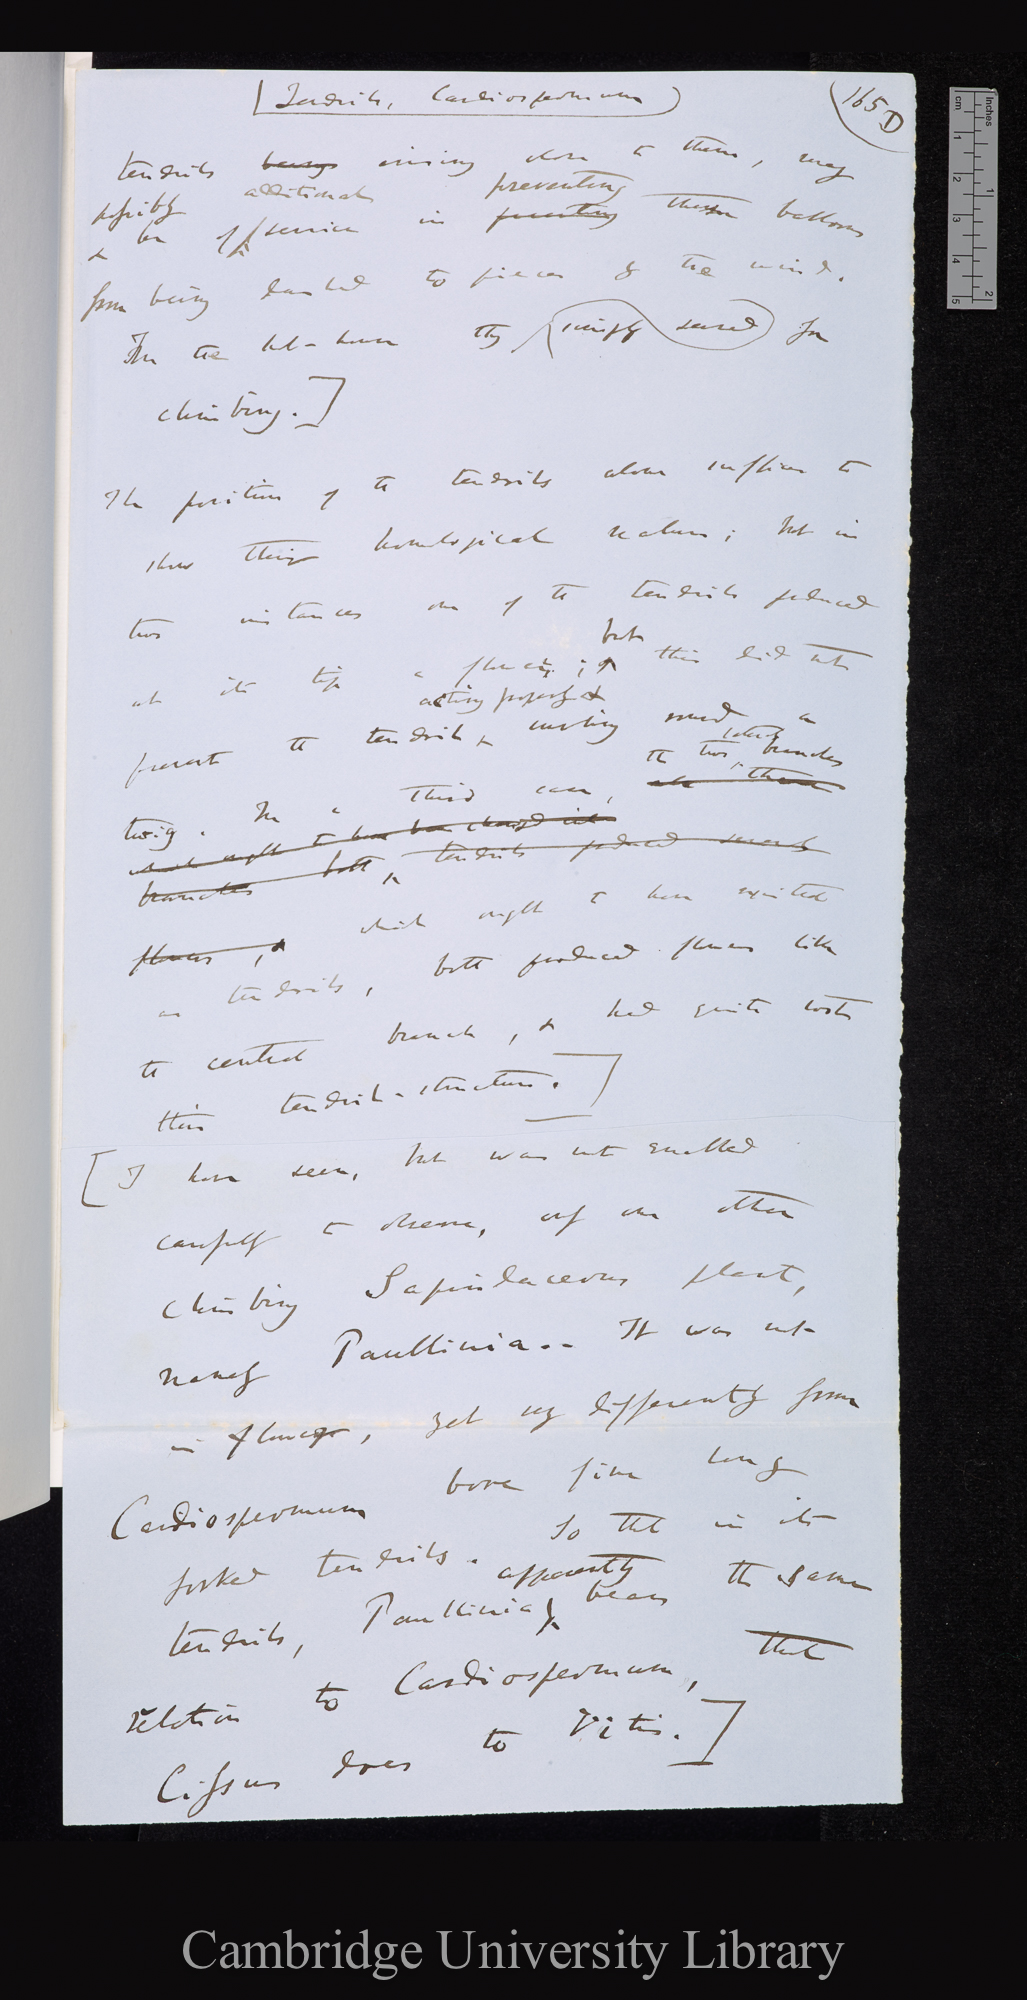 (Tendrils, Cardiospermum)
165 D
tendrils being rising close to them, may
possibly additional preventing
& be of service in preventing these balloons
from being dashed to pieces by the wind.
In the hot-house they simply served for
climbing.]
The position of the tendrils alone suffices to
show their homological nature; but in
two instances one of the tendrils produced
at its tip a flower; but this did not
acting properly &
prevent the tendril curling round a
lateral
twig. In a third case, the two branches
which ought to have been changed into
branches both tendrils produced several
flowers, which ought to have existed
as tendrils, both produced flowers like
the central branch, & had quite lost
their tendril-structure.]
[I have seen, but was not enabled
carefully to observe, only one other
climbing Sapindaceous plant,
namely Paullinia.. It was not
in flower, yet differently from
Cardiospermum bore fine long
forked tendrils. So that in its
tendrils, Paullinia apparently bears the same
relation to Cardiospermum, that
Cissus does to Vitis.]
cm
1
2
3
4
5
Inches
1
2
Cambridge University Library